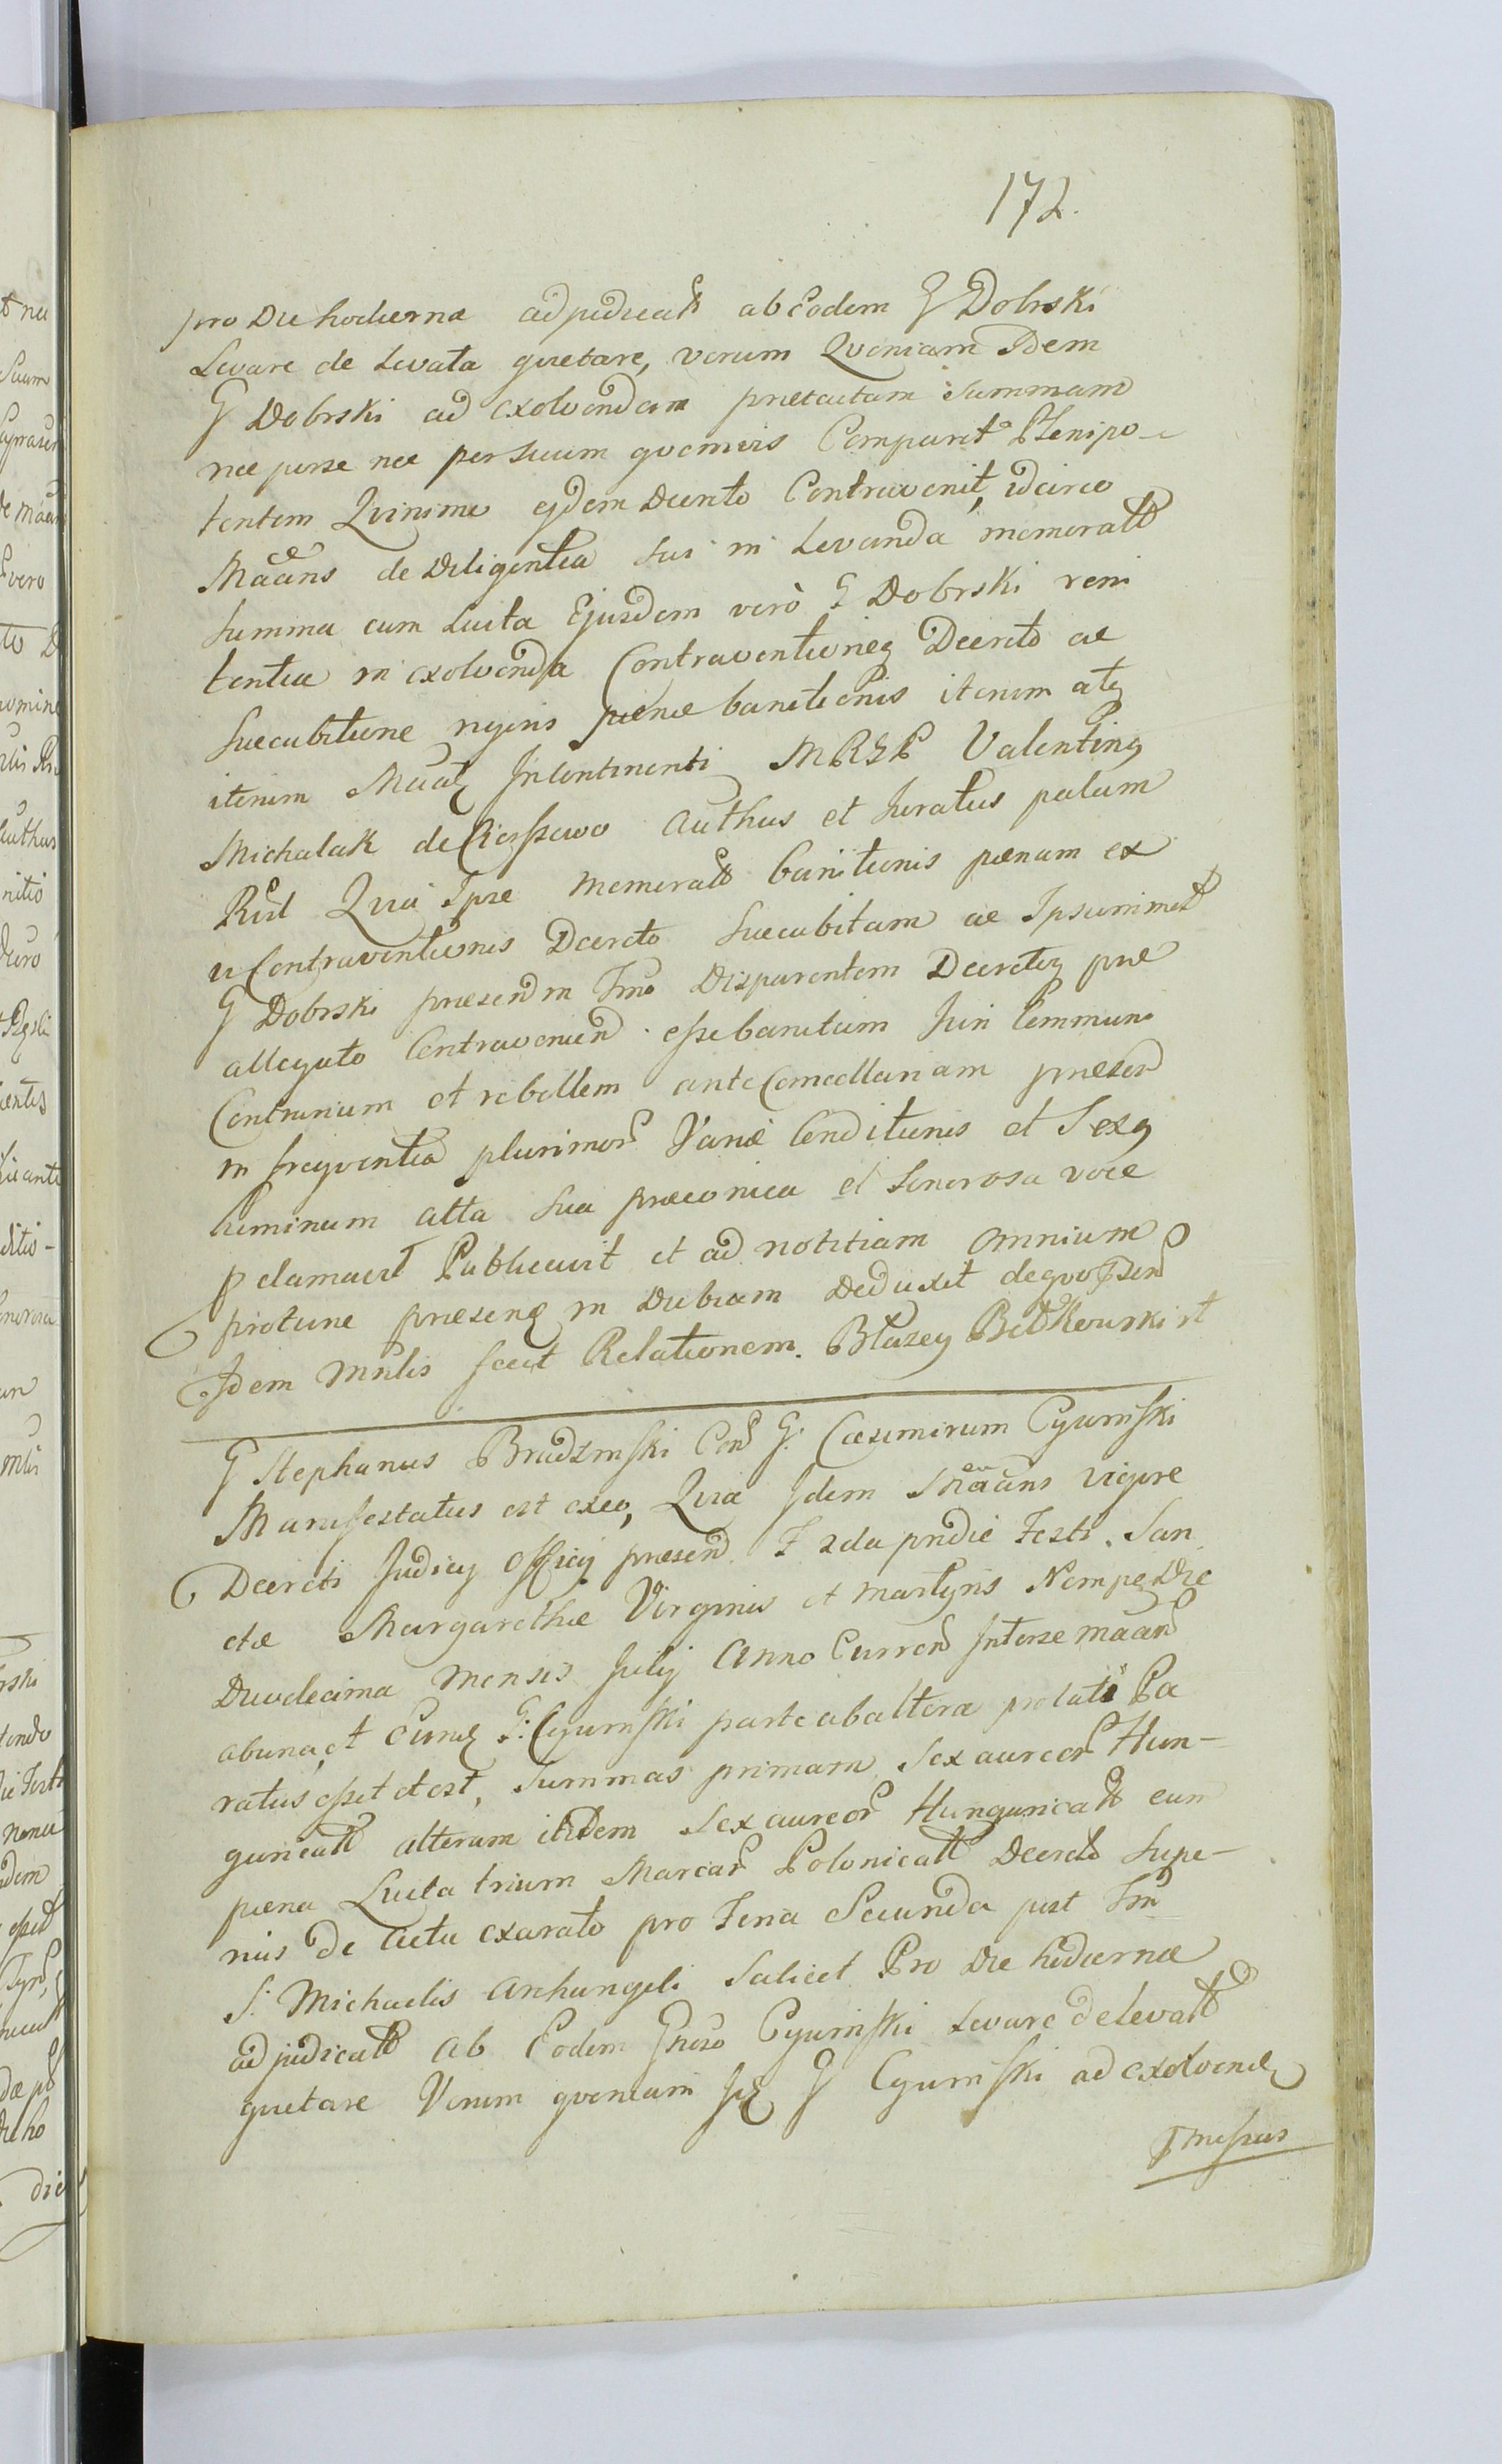 172.
pro Die hodierna adjudicatt ab Eodem G Dobrski
Levare de Levata quietare, verum Qvoniam Idem
G Dobrski ad exolvendam prætactam summam
nec per se nec per suum qvemvis Comparet Plenipo-
tentem Qvinimo ejdem Decreto Contravenit, idcirco
Maães de Diligentia sui in Levanda memoratt
summa cum Lucta Ejusdem verò G Dobrski reni
tentia in exolvenda Contraventioneq Decreto ac
succubitione rigoris pœnæ banitionis iterum atq
iterum Incontinenti MRSP Valentinq
Michalak de authus et Juratus palam
Qvia Ipse memoratt banitionis pœnam ex
Contraventionis Decreto succubitam ac Ipsummet
G Dobrski præsend in Disparentem Decretoq præ
allegato Contraveniend. esse banitum Juri Communi
Contrarium et rebellem ante Cancellariam præsen
in freqventia plurimor Variæ Conditionis et Sexq
hominum alta sua præconica et sonorosa voce
pclamavit Publicavit et ad notitiam omnium
protunc præsenq in Dubiam Deduxit deqvo psen
Idem mnlis fecit Relationem. Błazey
G Stephanus Bradzinski Con G: Casimirum Cyuniski
Manifestatus est exeo, Qvia Idem Mãans vigore
Decreti Judicij Officij præsend. F 2da pridie Festi. San
ctæ Margarethæ Virginis et Martyris Nempe Die
Duodecima mensis Julij Anno Curren Inter se maan
ab una, et Eunq G: Cyuniski parte ab altera prolati Pa
ratus esset et est, summas primam sex aureor Hun-
garicatt alteram itidem sex aureor Hungaricatt cum
pœna Lucta trium Marcar Polonicatt Decreto supe-
rius de actu exarato pro Feria Secunda post Fm
S. Michaelis Archangeli scilicet Pro Die hodierna
adjudicatt ab Eodem Gnoso Cyuniski Levare de levatt
quietare Verum qvoniam G Cyuniski ad exolvenq